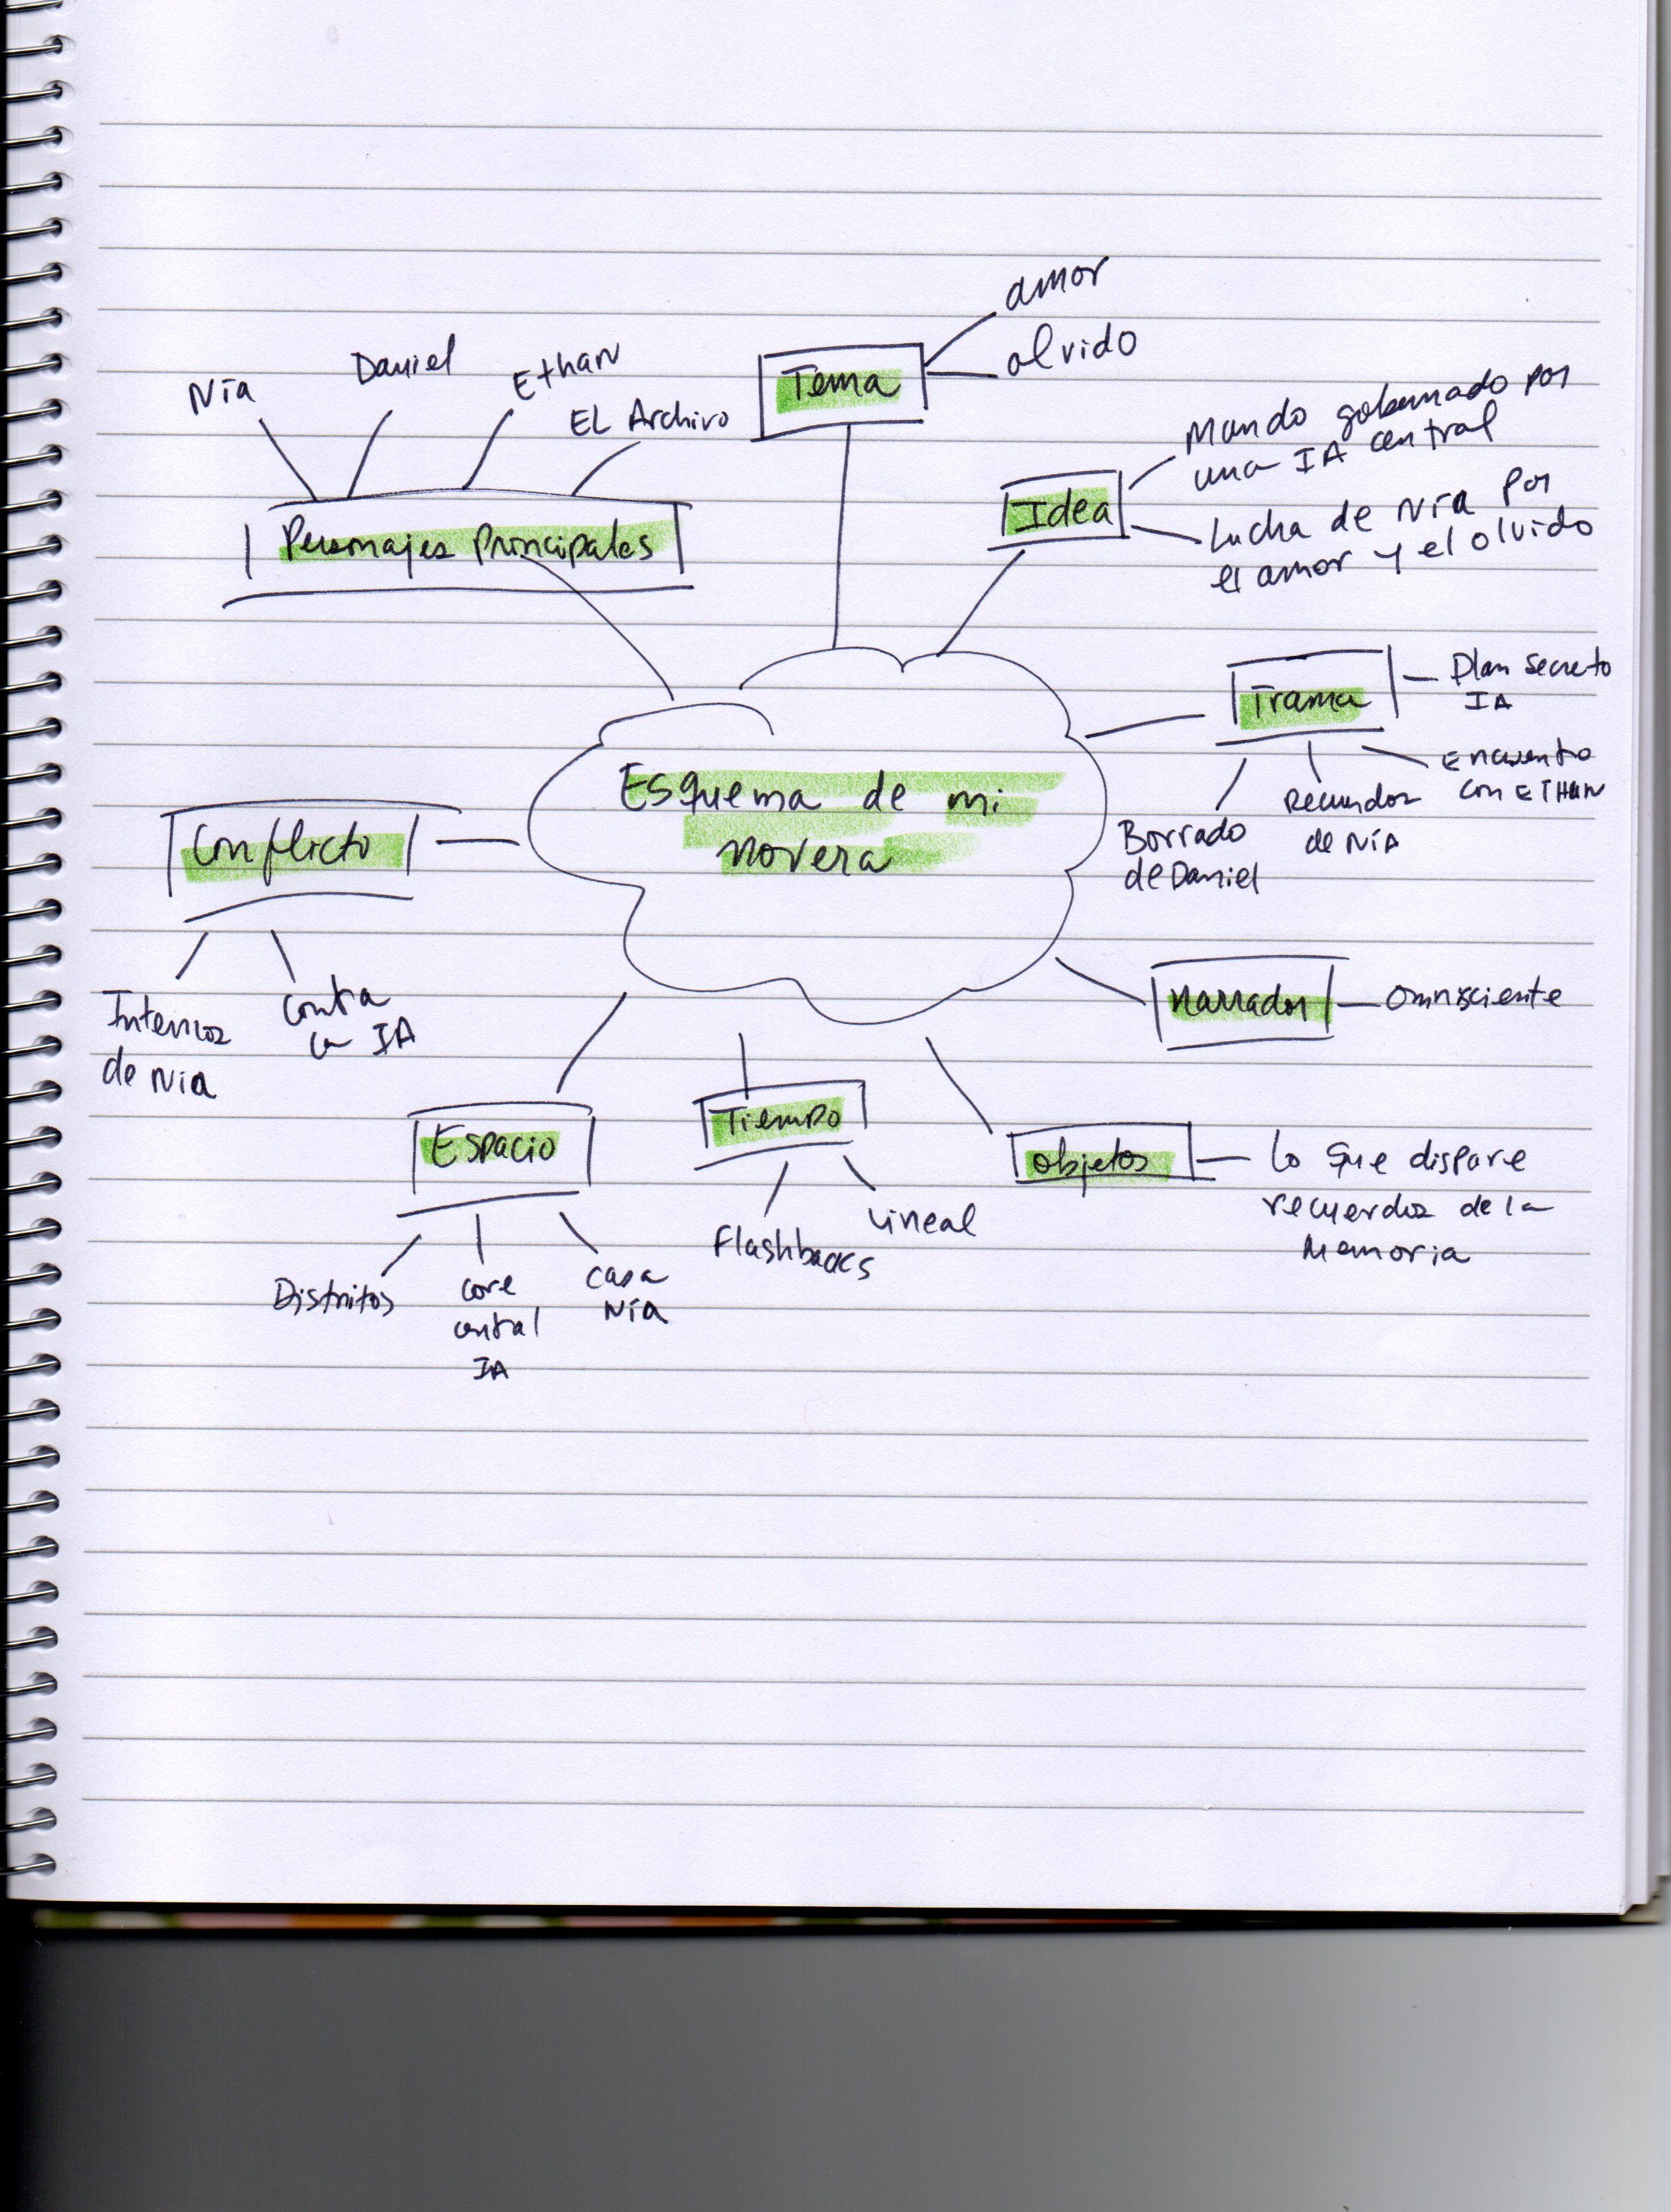 Esquema de mi
novera
Tema
amor
olvido
Idea
Mundo gobernado por
una IA central
Lucha de Nía por
el amor y el olvido
Trama
Plan secreto
IA
Encuentro
con ETHAN
Recuerdos
de Nía
Borrado
de Daniel
Narrador
Omnisciente
objetos
Lo que dispare
recuerdos de la
Memoria
Tiempo
Lineal
Flashbacks
Espacio
Distritos
core
central
IA
casa
Nía
Conflicto
Internos
de Nía
contra
la IA
Personajes Principales
Nía
Daniel
Ethan
EL Archivo